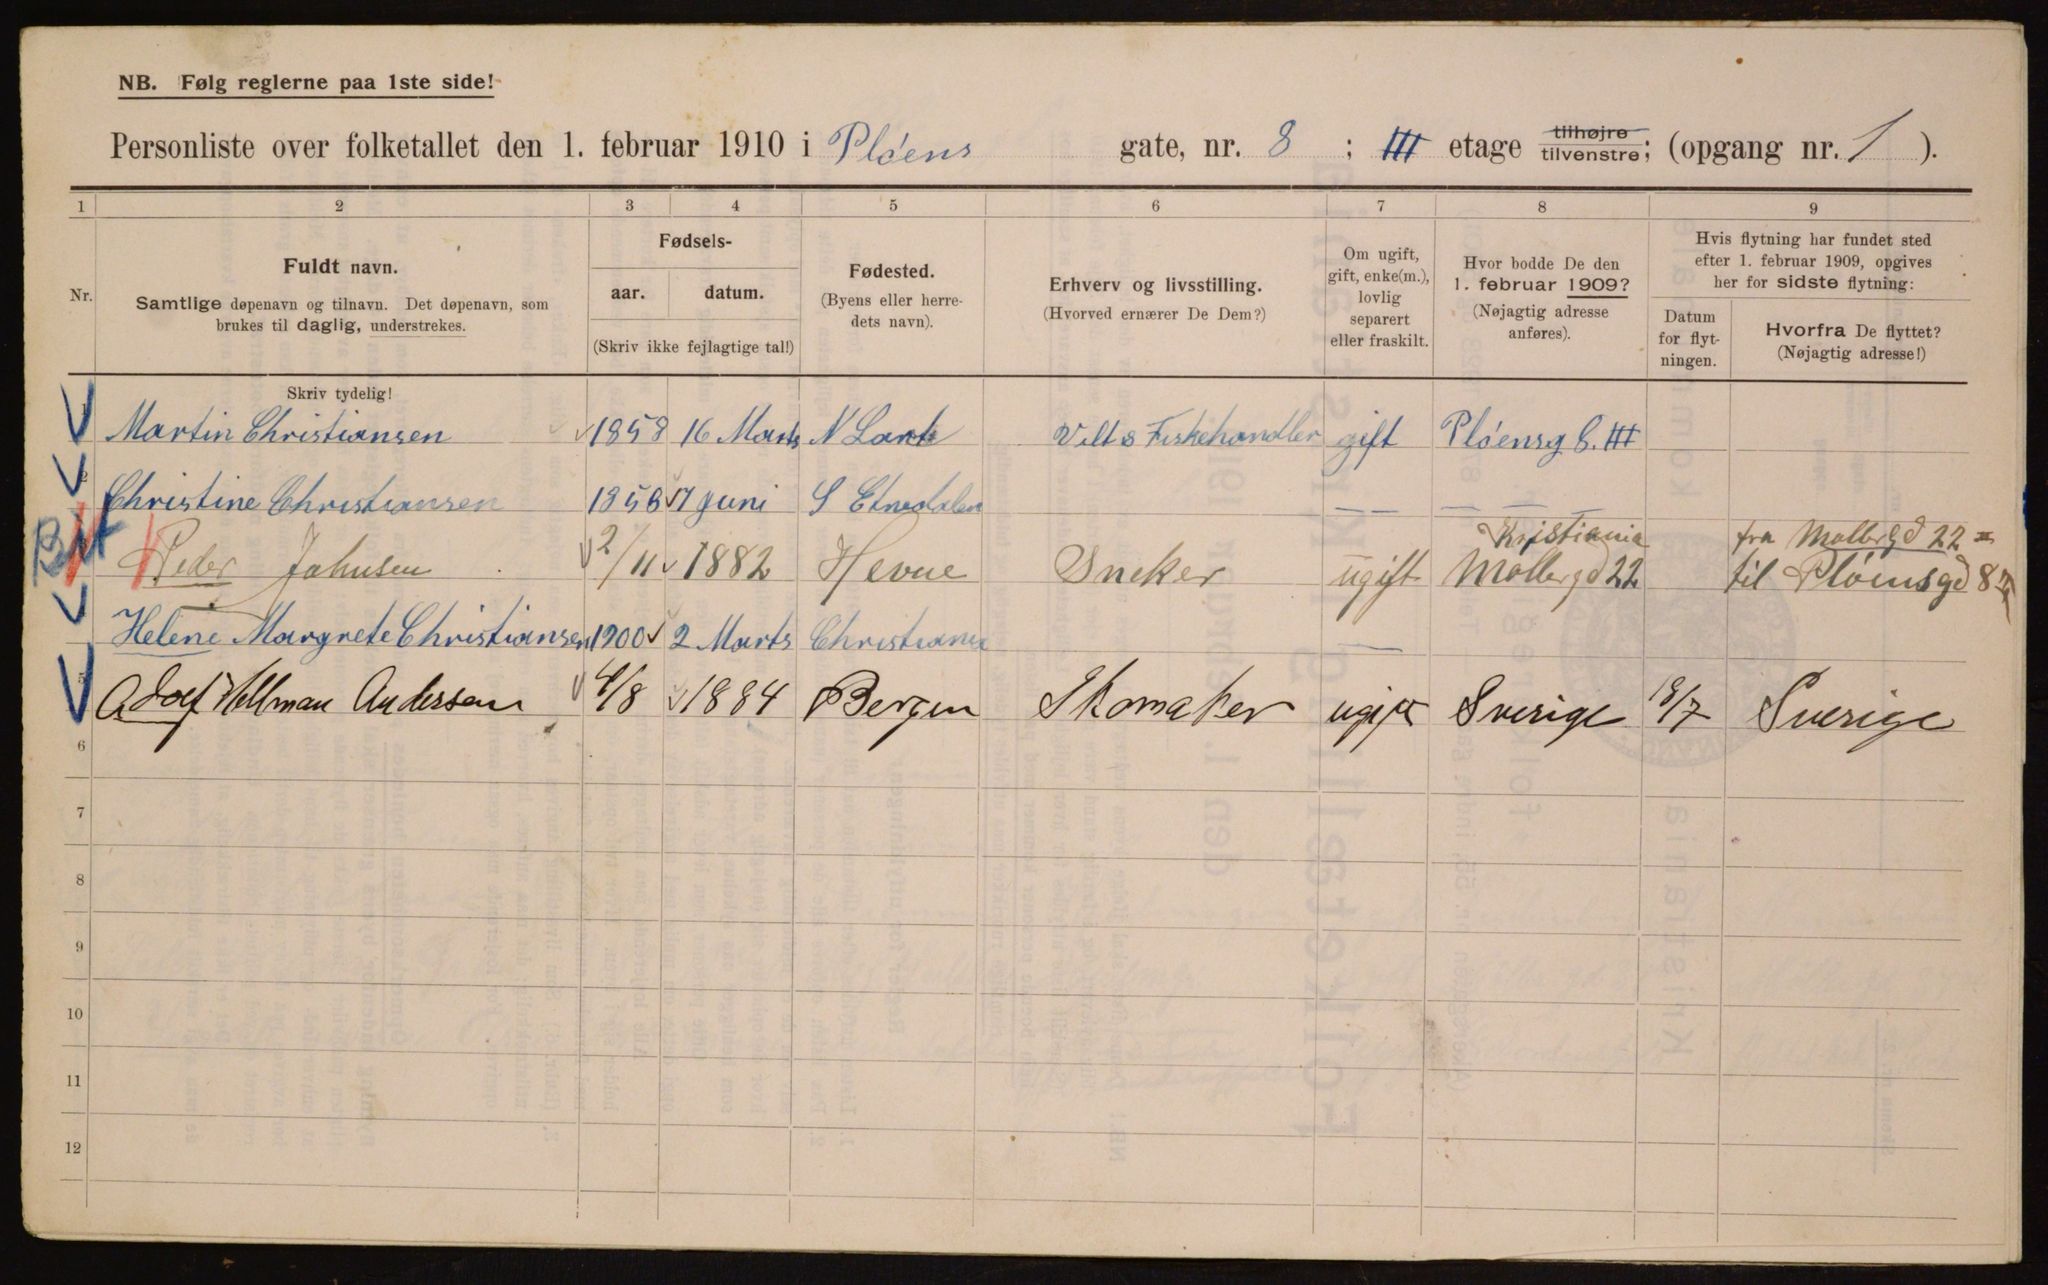 NB. Følg reglerne paa 1ste side!
Personliste over folketallet den 1. februar 1910 i Pløens gate, nr. 8 ; III etage tilhøjre tilvenstre; (opgang nr. 1 ).
1 2 3 4 5 6 7 8 9
Nr.
Fuldt navn.
Samtlige døpenavn og tilnavn. Det døpenavn, som
brukes til daglig, understrekes.
Skriv tydelig!
Fødsels-
aar. datum.
(Skriv ikke fejlagtige tal!)
Fødested.
(Byens eller herre-
dets navn).
Erhverv og livsstilling.
(Hvorved ernærer De Dem?)
Om ugift,
gift, enke(m.),
lovlig
separert
eller fraskilt.
Hvor bodde De den
1. februar 1909?
(Nøjagtig adresse
anføres).
Hvis flytning har fundet sted
efter 1. februar 1909, opgives
her for sidste flytning:
Datum
for flyt-
ningen.
Hvorfra De flyttet?
(Nøjagtig adresse!)
Martin Christiansen 1858 16 Marts N Land Vilt & Fiskehandler gift Pløensg 8. III
Christine Christiansen 1856 17 Juni S Etnedalen — — — —
Kristiania fra Mollergd 22
Peder Johnsen 2/11 1882 Hevne Sneker ugift Mollergd 22 til Pløensgd 8
Helene Margrete Christiansen 1900 2 Marts Christiania —
5 Adolf Hellman Andersen 4/8 1884 Bergen Skomaker ugift Sverige 18/7 Sverige
6
7
8
9
10
11
12